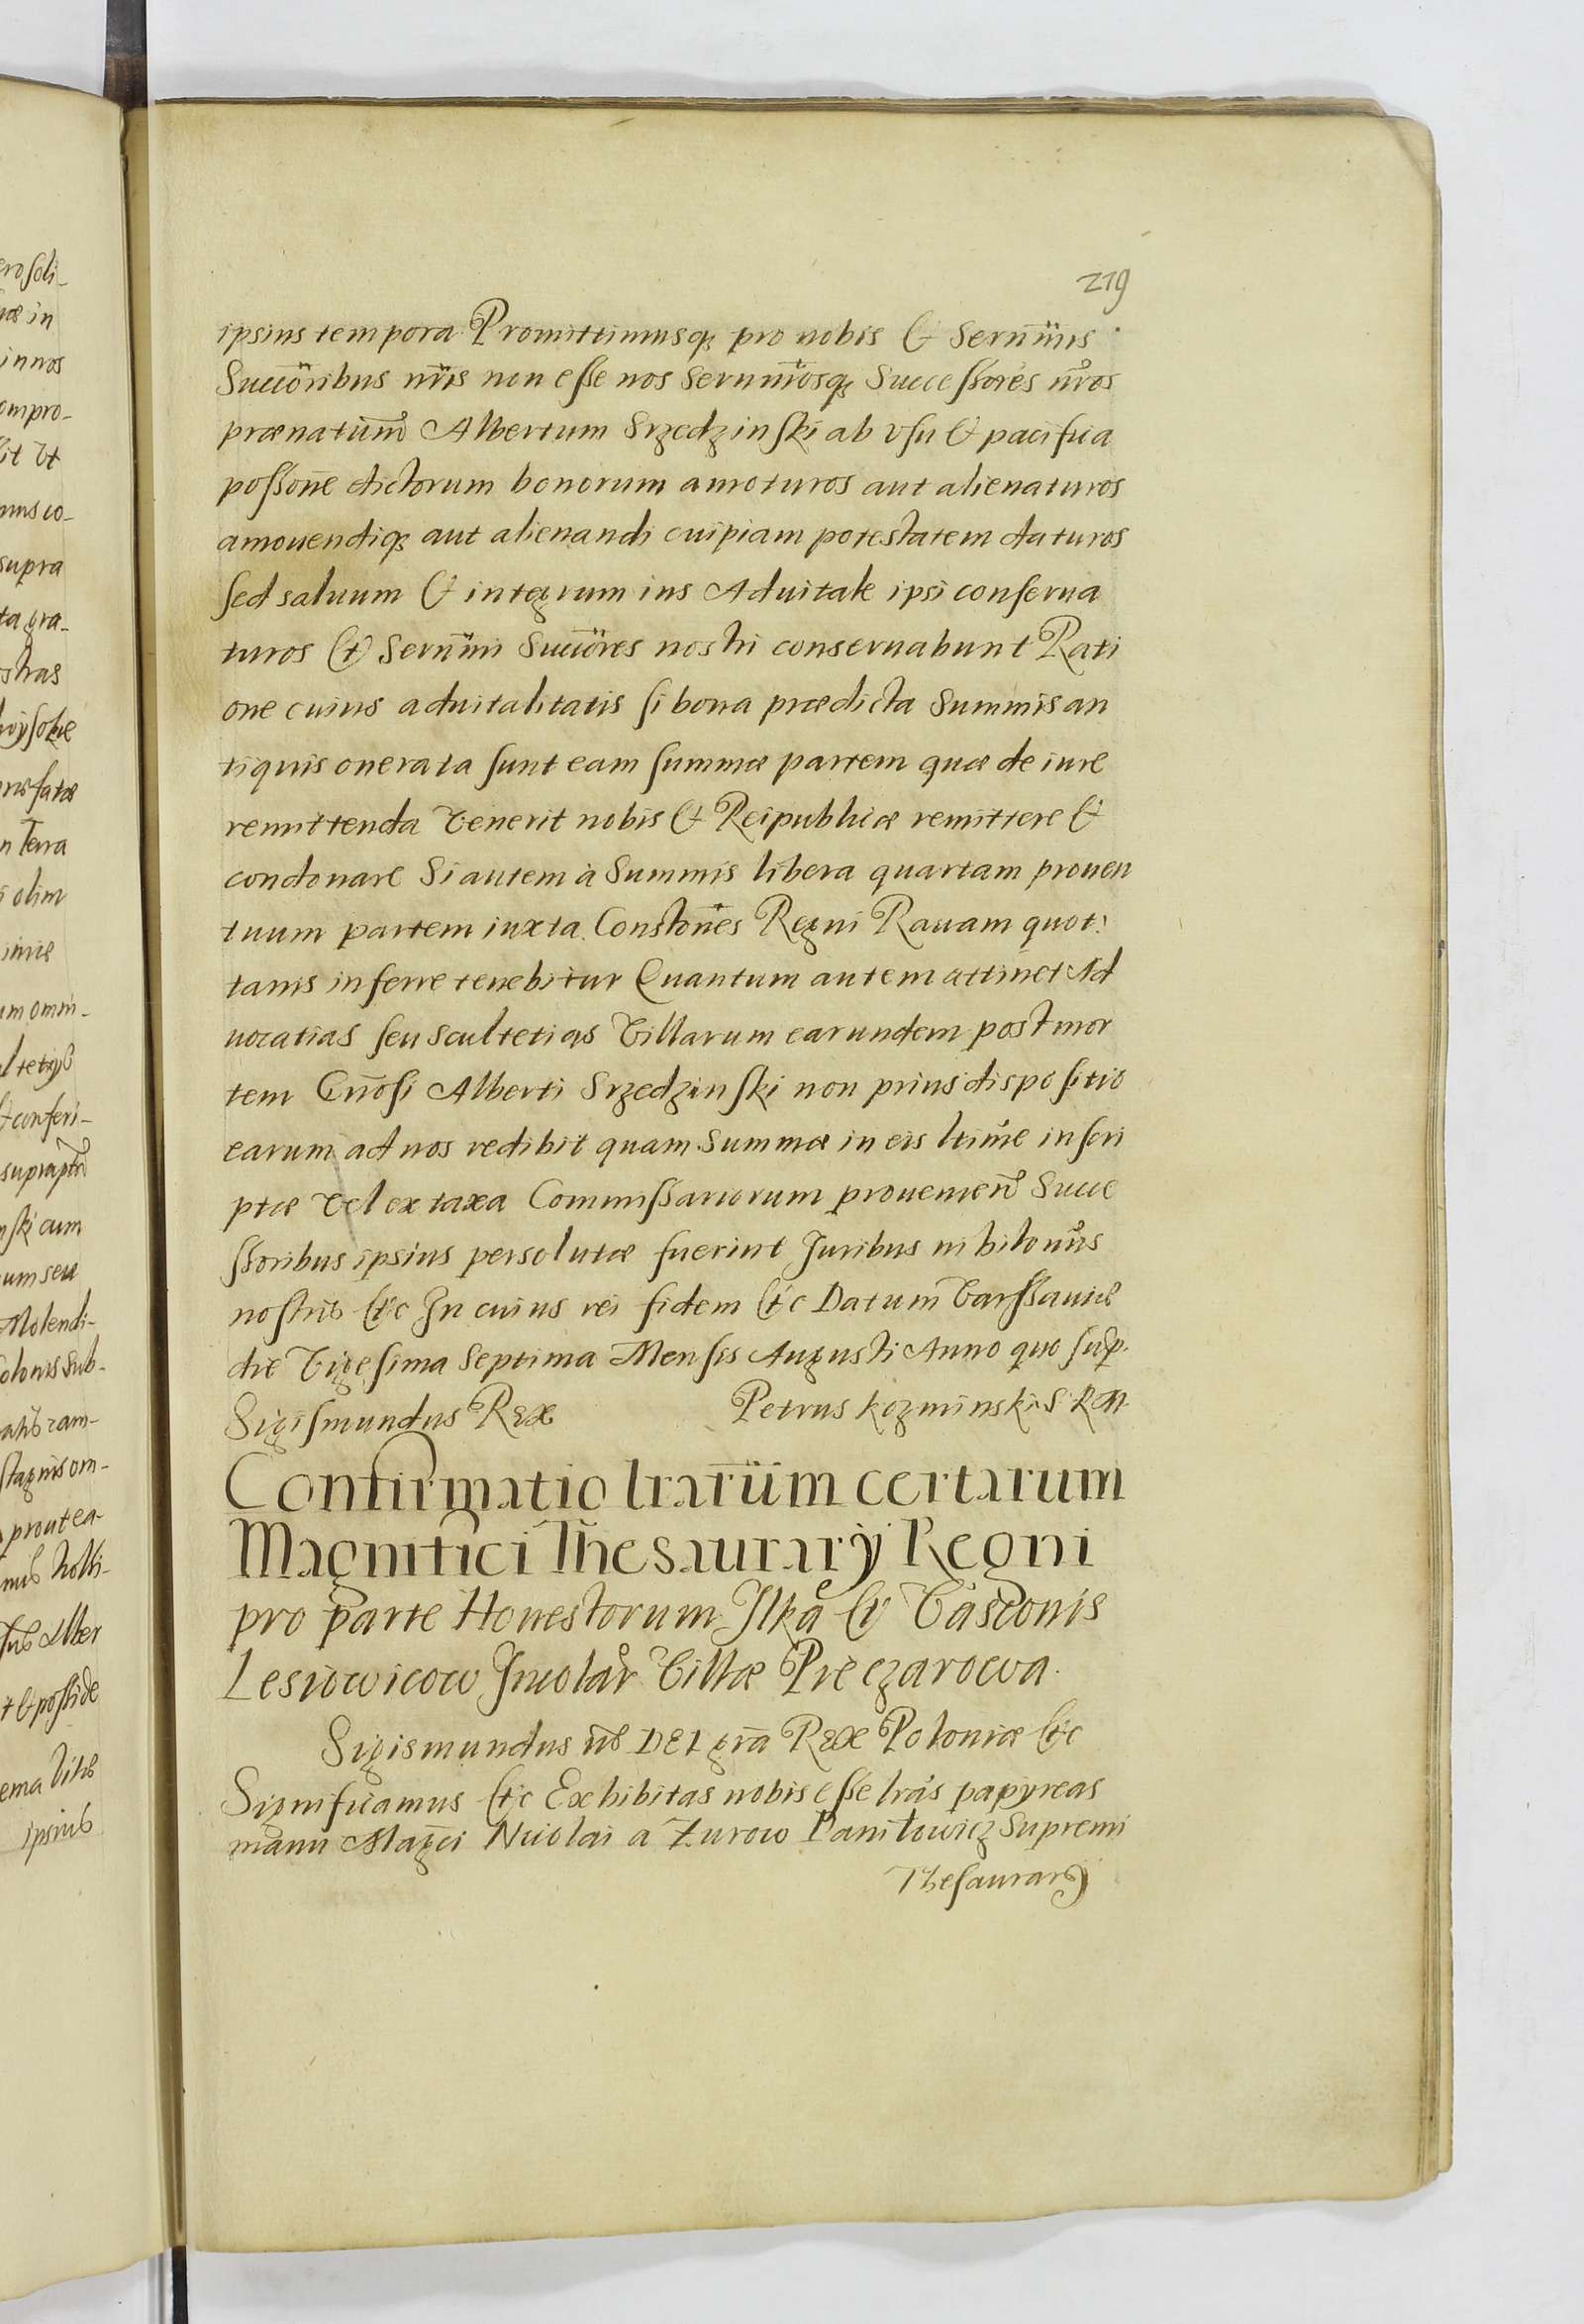 219
ipsius tempora Promittimusq; pro nobis & Sernmis
Succoribus nris non esse nos Sernmosq; Successores nros
prænatum Albertum Srzedzinski ab vsu & pacifica
possone dictorum bonorum amoturos aut alienaturos
amouendiq; aut alienandi cuipiam potestatem daturos
sed saluum & integrum ius Aduitale ipsi conserua
turos & Sernmi Succores nostri conseruabunt Rati
one cuius aduitalitatis si bona prædicta Summis an
tiquis onerata sunt eam summæ partem quæ de iure
remittenda venerit nobis & Reipublicæ remittere &
condonare Si autem à Summis libera quartam prouen
tuum partem iuxta Constones Regni Rauam quot:
tanis inferre tenebitur Quantum autem attinet Ad
uocatias seu scultetias Villarum earundem post mor
tem Gnosi Alberti Srzedzinski non prius dispositio
earum ad nos redibit quam Summæ in eis ltime inscri
ptæ vel ex taxa Commissariorum prouenien Succe
ssoribus ipsius persolutæ fuerint Juribus nihilomus
nostris &c In cuius rei fidem &c Datum Varssauiæ
die Vigesima Septima Mensis Augusti Anno quo sup.
Sigismundus Rex Petrus Kozminski S R M
Confirmatio lrarum certarum
Magnifici Thesaurarÿ Regni
pro parte Honestorum Ilka & Vasconis
Lesiowicow Incolar Villæ Pieczarowa.
Sigismundus 3us DEI gra Rex Poloniæ &c
Significamus &c Exhibitas nobis esse lras papyreas
manu Magci Nicolai a Zurow Daniłowicz Supremi
Thesaurarÿ